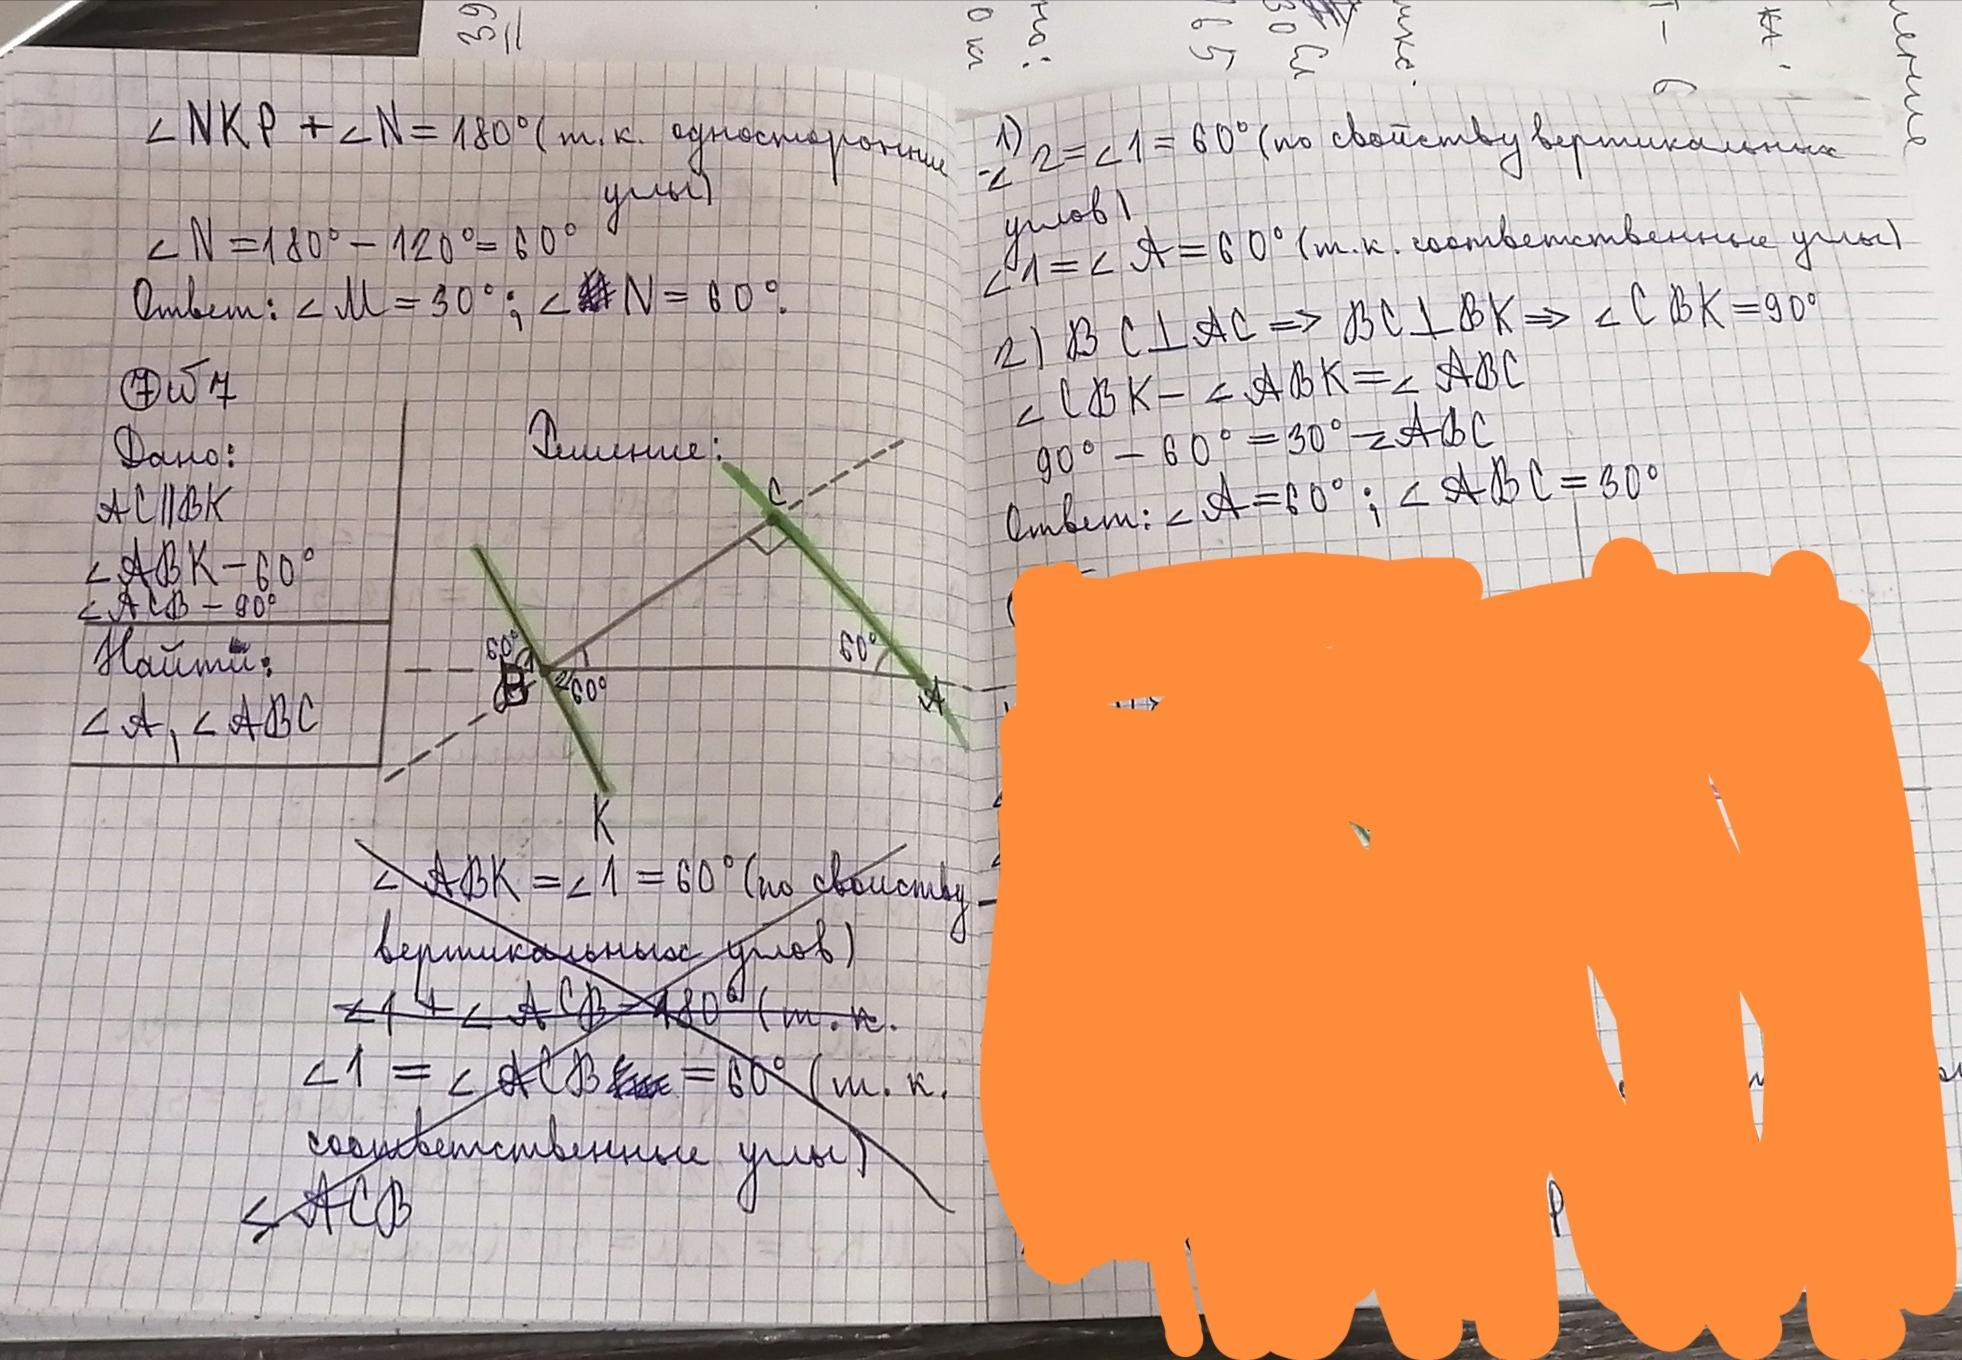 39
||
∠NKP + ∠N = 180° (т.к. односторонние
углы)
∠N = 180° - 120° = 60°
Ответ: ∠M = 30°; ∠N = 60°.
7 w 7
Дано:
AC || BK
∠ABK - 60°
∠ACB - 90°
Найти:
∠A, ∠ABC
Решение:
C
60°
1
B
2
60°
60°
A
K
∠ABK = ∠1 = 60° (по свойству
вертикальных углов)
∠1 + ∠ACB = 180° (т.к.
∠1 = ∠ACB = 60° (т.к.
соответственные углы)
∠ACB
1)
∠2 = ∠1 = 60° (по свойству вертикальных
углов)
∠1 = ∠A = 60° (т.к. соответственные углы)
2) BC ⊥ AC => BC ⊥ BK => ∠CBK = 90°
∠CBK - ∠ABK = ∠ABC
90° - 60° = 30° - ∠ABC
Ответ: ∠A = 60°; ∠ABC = 30°
P